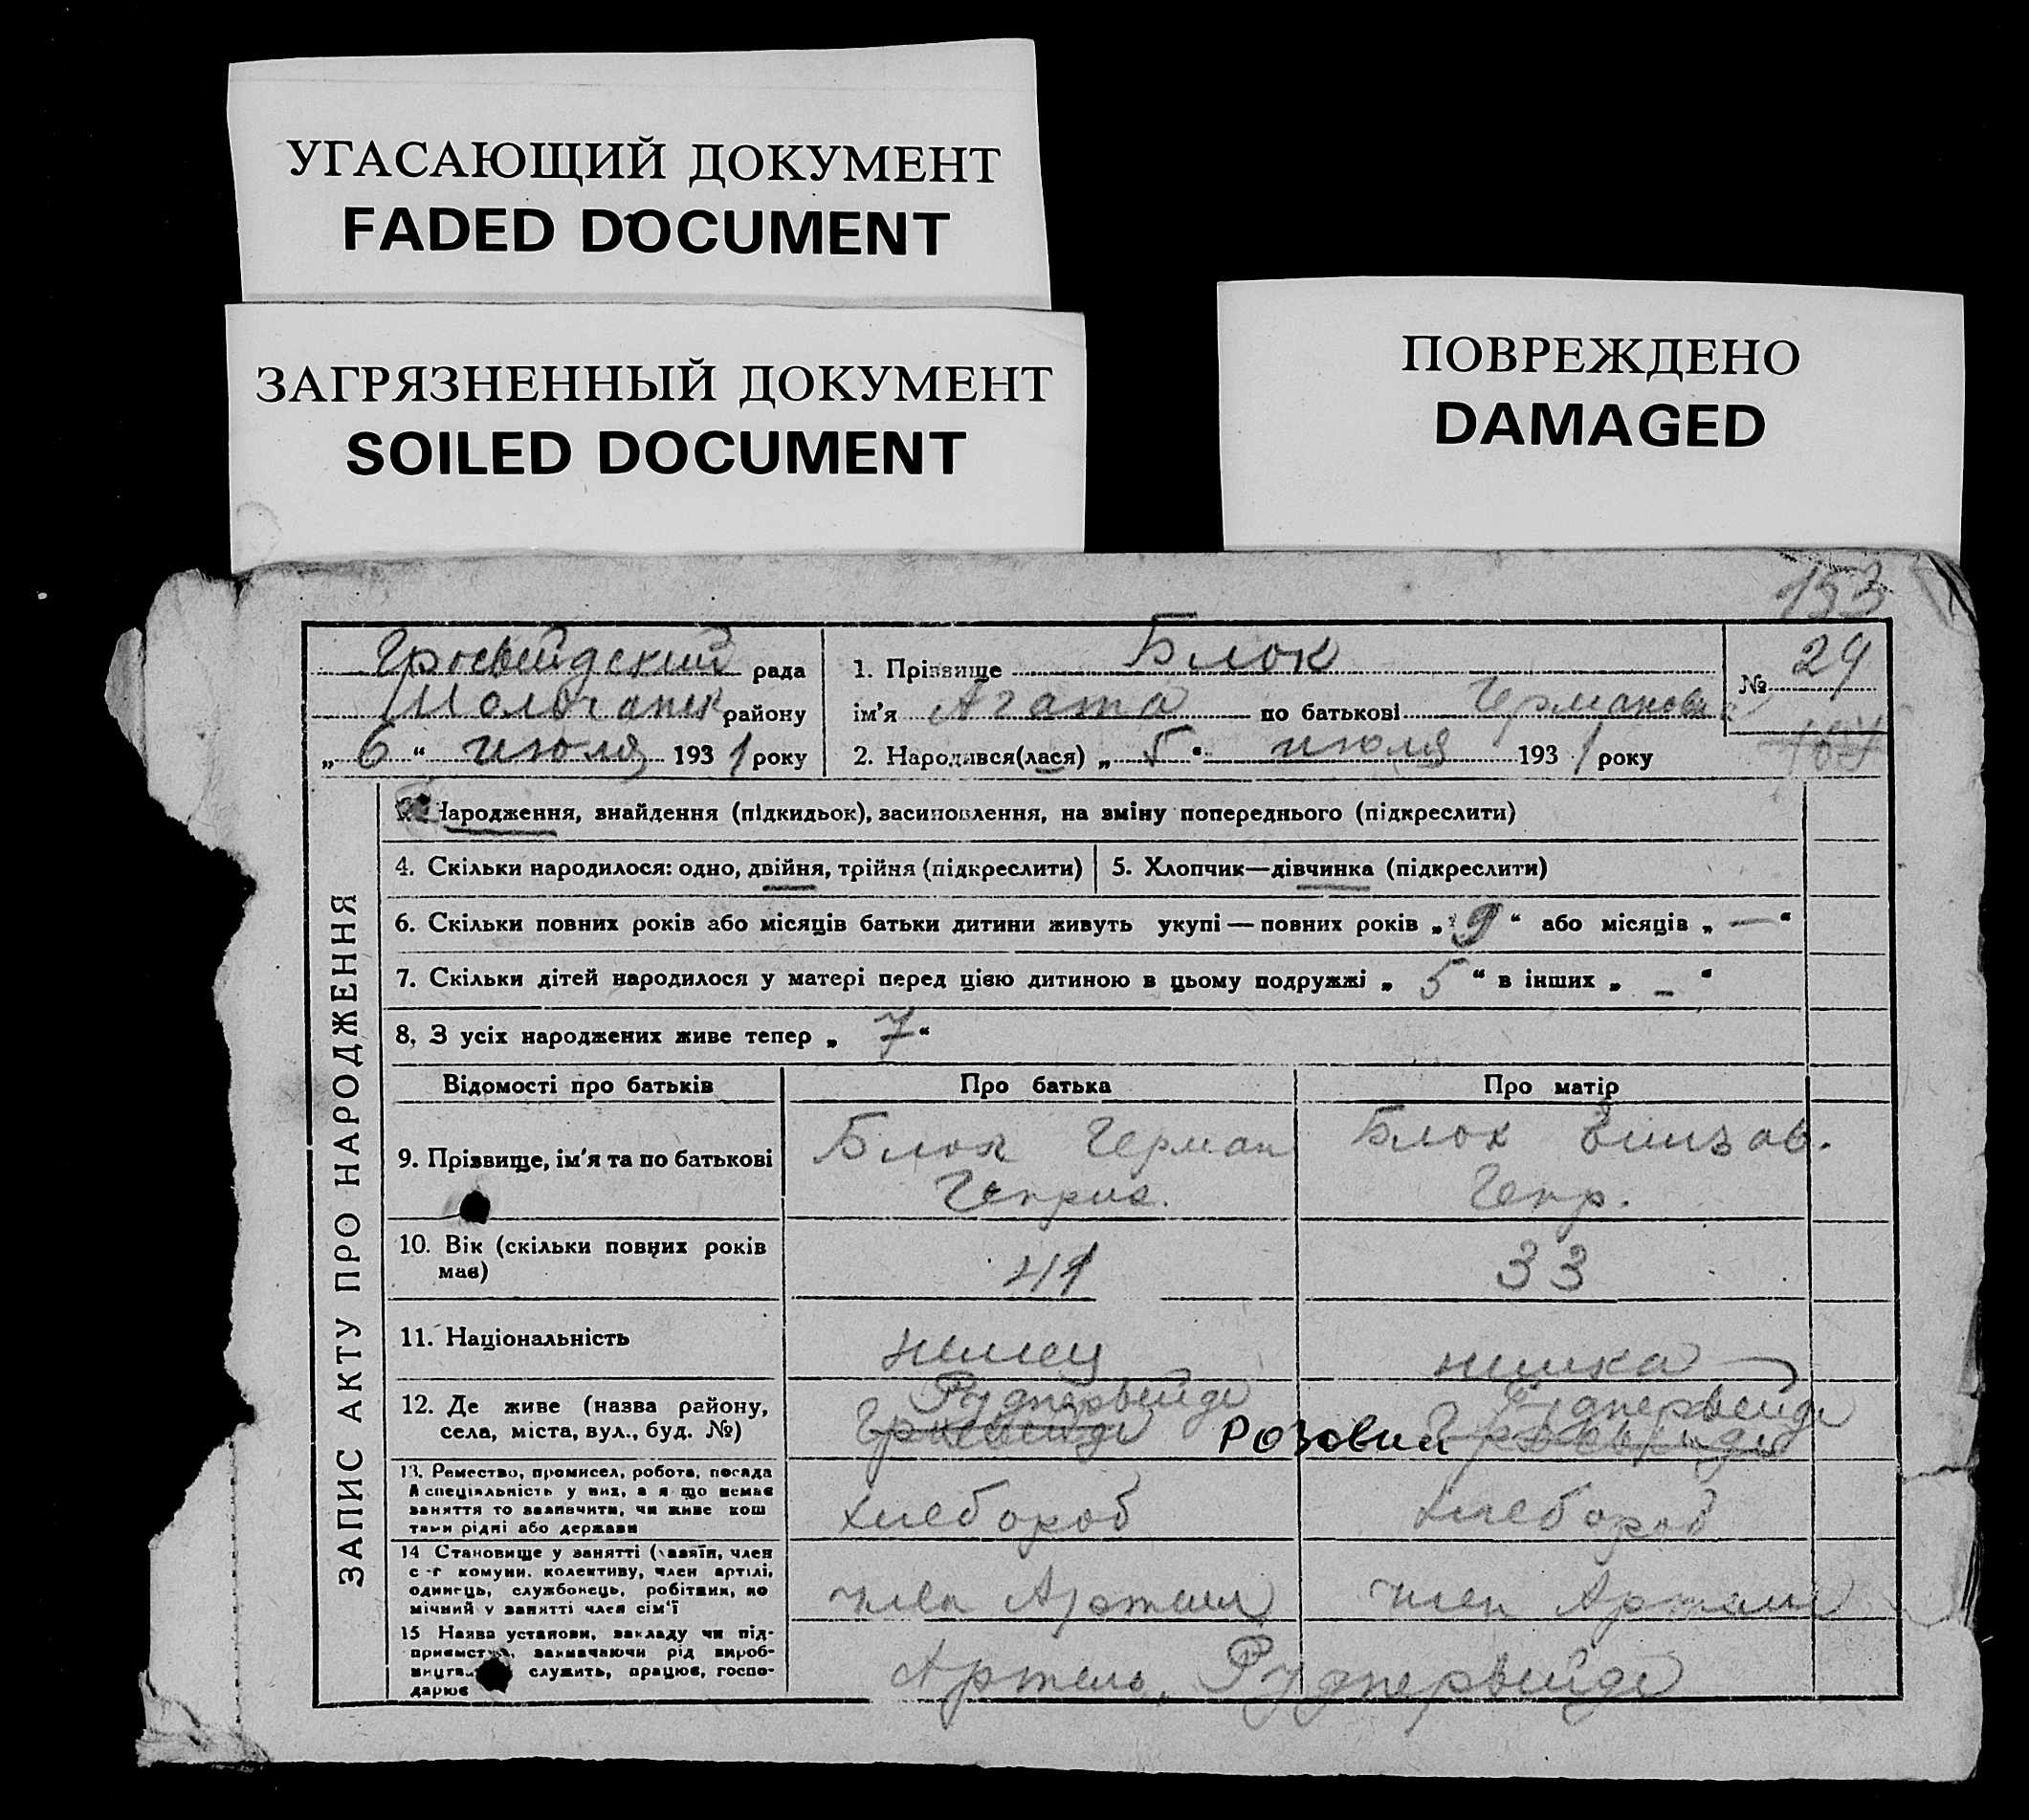 УГАСАЮЩИЙ ДОКУМЕНТ
FADED DOCUMENT
ЗАГРЯЗНЕННЫЙ ДОКУМЕНТ
SOILED DOCUMENT
ПОВРЕЖДЕНО
DAMAGED
153
Гросвейдский рада
Молочанск району
„ 6 “ июля 1931 року
1. Прізвище Блок
ім’я Агата по батькові Германовн
2. Народився(лася) „ 5 “ июля 1931 року
№ 29
ЗАПИС АКТУ ПРО НАРОДЖЕННЯ
Народження, знайдення (підкидьок), засиновлення, на зміну попереднього (підкреслити)
4. Скільки народилося: одно, двійня, трійня (підкреслити)
5. Хлопчик—дівчинка (підкреслити)
6. Скільки повних років або місяців батьки дитини живуть укупі — повних років „ 9 “ або місяців „ — “
7. Скільки дітей народилося у матері перед цією дитиною в цьому подружжі „ 5 “ в інших „ – “
8, З усіх народжених живе тепер „ 7 “
Відомості про батьків
Про батька
Про матір
9. Прізвище, ім’я та по батькові
Блок Герман
Генрих.
Блок Елизав.
Генр.
10. Вік (скільки повних років
має)
41
33
11. Національність
немец
немка
12. Де живе (назва району,
села, міста, вул., буд. №)
Руднервейде
Гросвейде
Розовки
Руднервейде
Гросвейде
13. Ремество, промисел, робота, посада
й спеціяльність у них, а я що немає
заняття то зазначити, чи живе кош
тами рідні або держави
хлебороб
хлебороб
14 Становище у занятті (хазяїн, член
с-г комуни, колективу, член артілі,
одинець, службовець, робітник, по
мічний у занятті член сім’ї
член Артели
член Артели
15 Назва установи, закладу чи під-
приємства, зазначаючи рід вироб-
ництва служить, працює, госпо-
дарює
Артель, Руднервейде